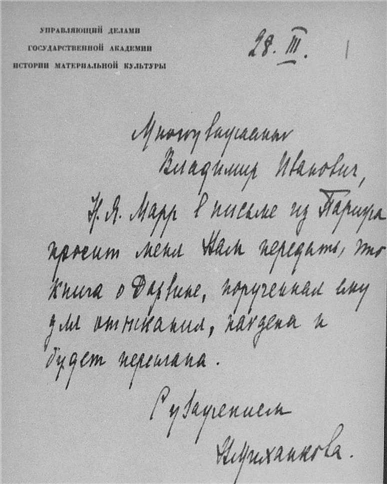 УПРАВЛЯЮЩИЙ ДЕЛАМИ
ГОСУДАРСТВЕННОЙ АКАДЕМИИ
ИСТОРИИ МАТЕРИАЛЬНОЙ КУЛЬТУРЫ
28. III.
Многоуважаемый
Владимир Иванович,
Н. Я. Марр в письме из Парижа
просит меня Вам передать, что
книга о Дарвине, порученная ему
для отыскания, найдена и
будет переслана.
С уважением